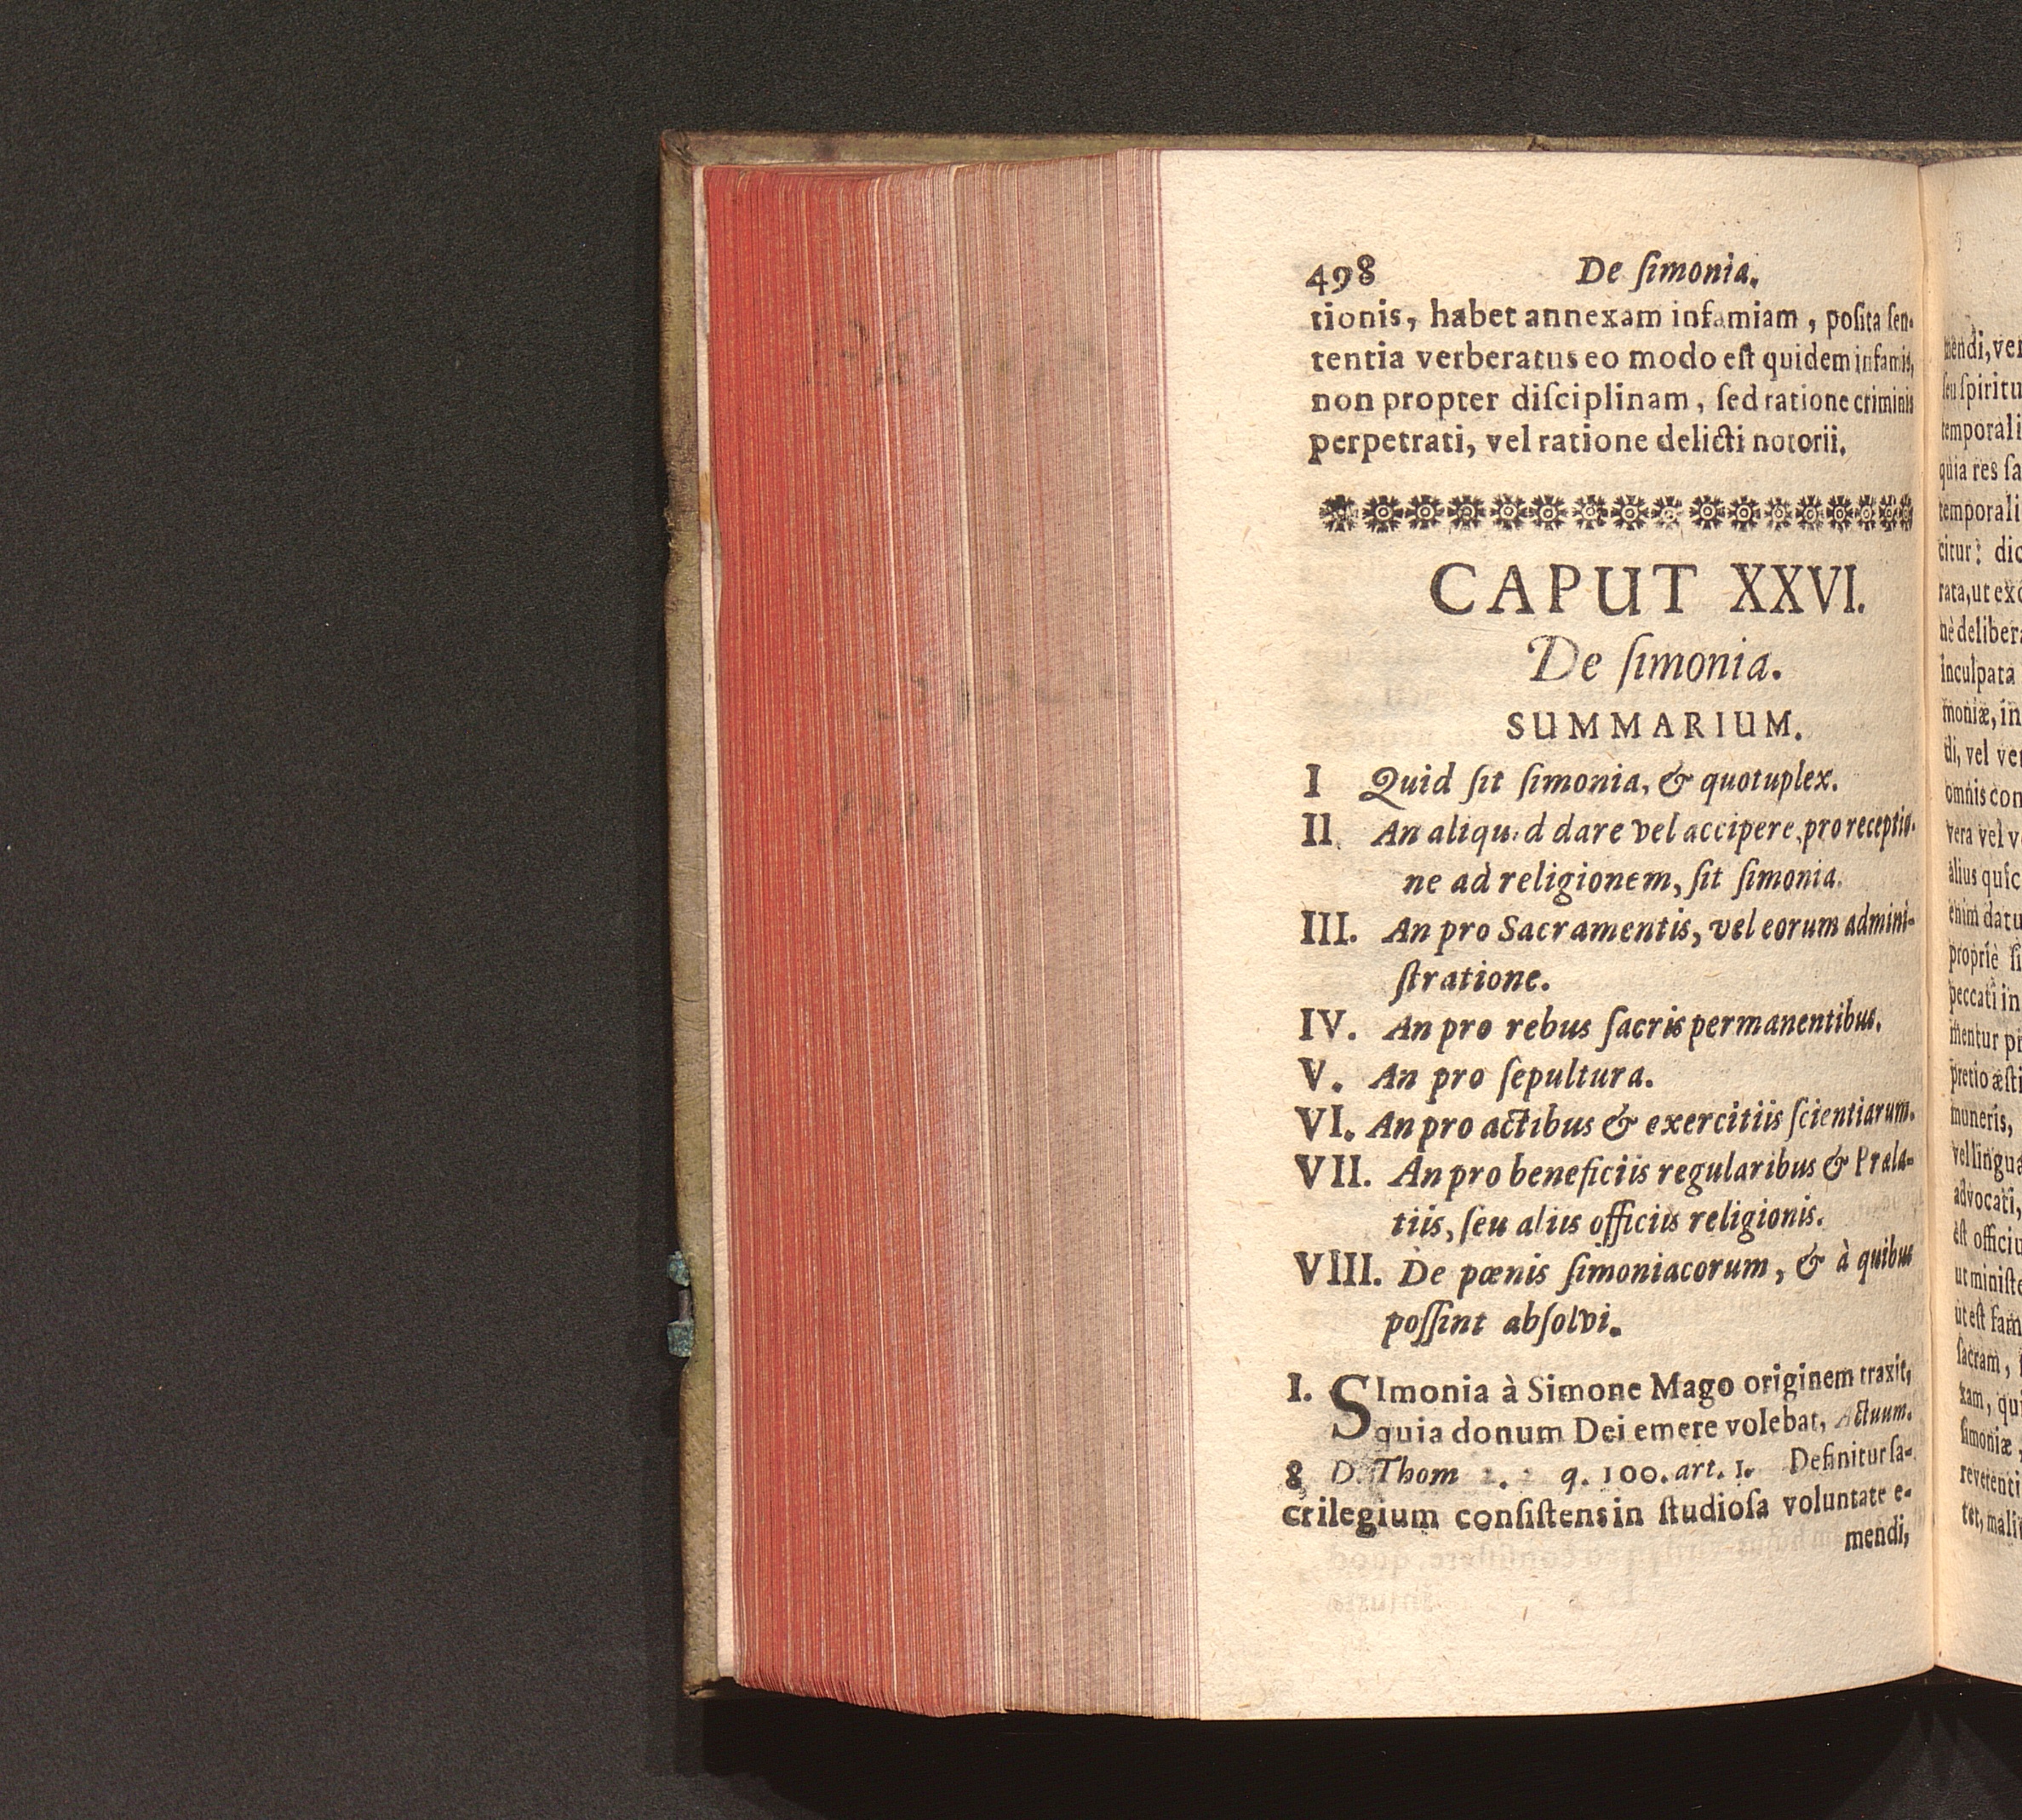 498 De ſimonia.
tionis, habet annexam infamiam, poſita ſen-
tentia verberatus eo modo eſt quidem infamis,
non propter diſciplinam, ſed ratione criminis
perpetrati, vel ratione delicti notorii.
CAPUT XXVI.
De ſimonia.
SUMMARIUM.
I Quid ſit ſimonia, & quotuplex.
II An aliquid dare vel accipere, pro receptio-
ne ad religionem, ſit ſimonia.
III. An pro Sacramentis, vel eorum admini-
ſtratione.
IV. An pro rebus ſacris permanentibus.
V. An pro ſepultura.
VI. An pro actibus & exercitiis ſcientiarum.
VII. An pro beneficiis regularibus & Præla-
tiis, ſeu aliis officiis religionis.
VIII. De pœnis ſimoniacorum, & à quibus
poſſint abſolvi.
I. SImonia à Simone Mago originem traxit,
quia donum Dei emere volebat, Actuum.
8 D. Thom 2. 2 q. 100. art. 1. Definitur ſa-
crilegium conſiſtens in ſtudioſa voluntate e-
mendi,
mendi, ver
ſeu ſpiritu
temporali
quia res ſa
temporali
citur: dic
rata, ut exc
nè deliber
inculpata
moniæ, in
di, vel ver
omnis con
vera vel v
alius quſc
enim datu
propriè ſi
peccati in
mentur pr
pretio æſti
muneris,
vel lingua
advocati,
eſt officiu
ut miniſte
ut eſt fam
ſacram,
xam, qui
ſimoniæ,
reverenti
tet, mali